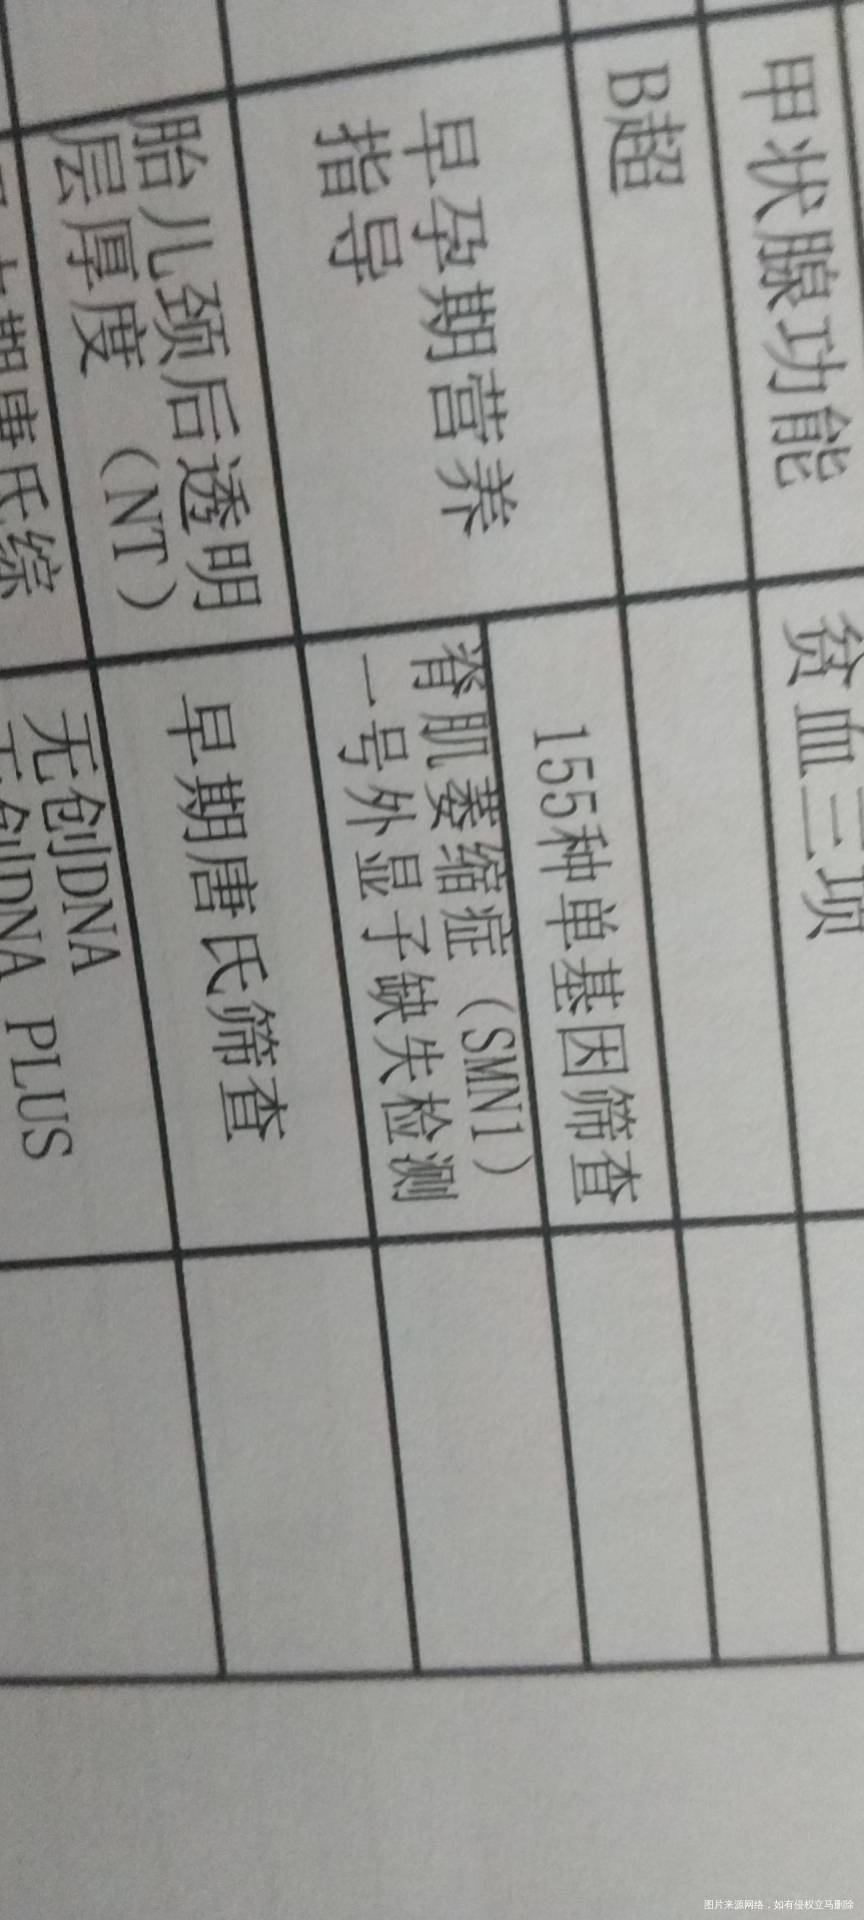 甲状腺功能
贫血三项
B超
早孕期营养
指导
155种单基因筛查
脊肌萎缩症（SMN1）
一号外显子缺失检测
胎儿颈后透明
层厚度（NT）
早期唐氏筛查
期唐氏综
无创DNA
无创DNA PLUS
图片来源网络，如有侵权立马删除